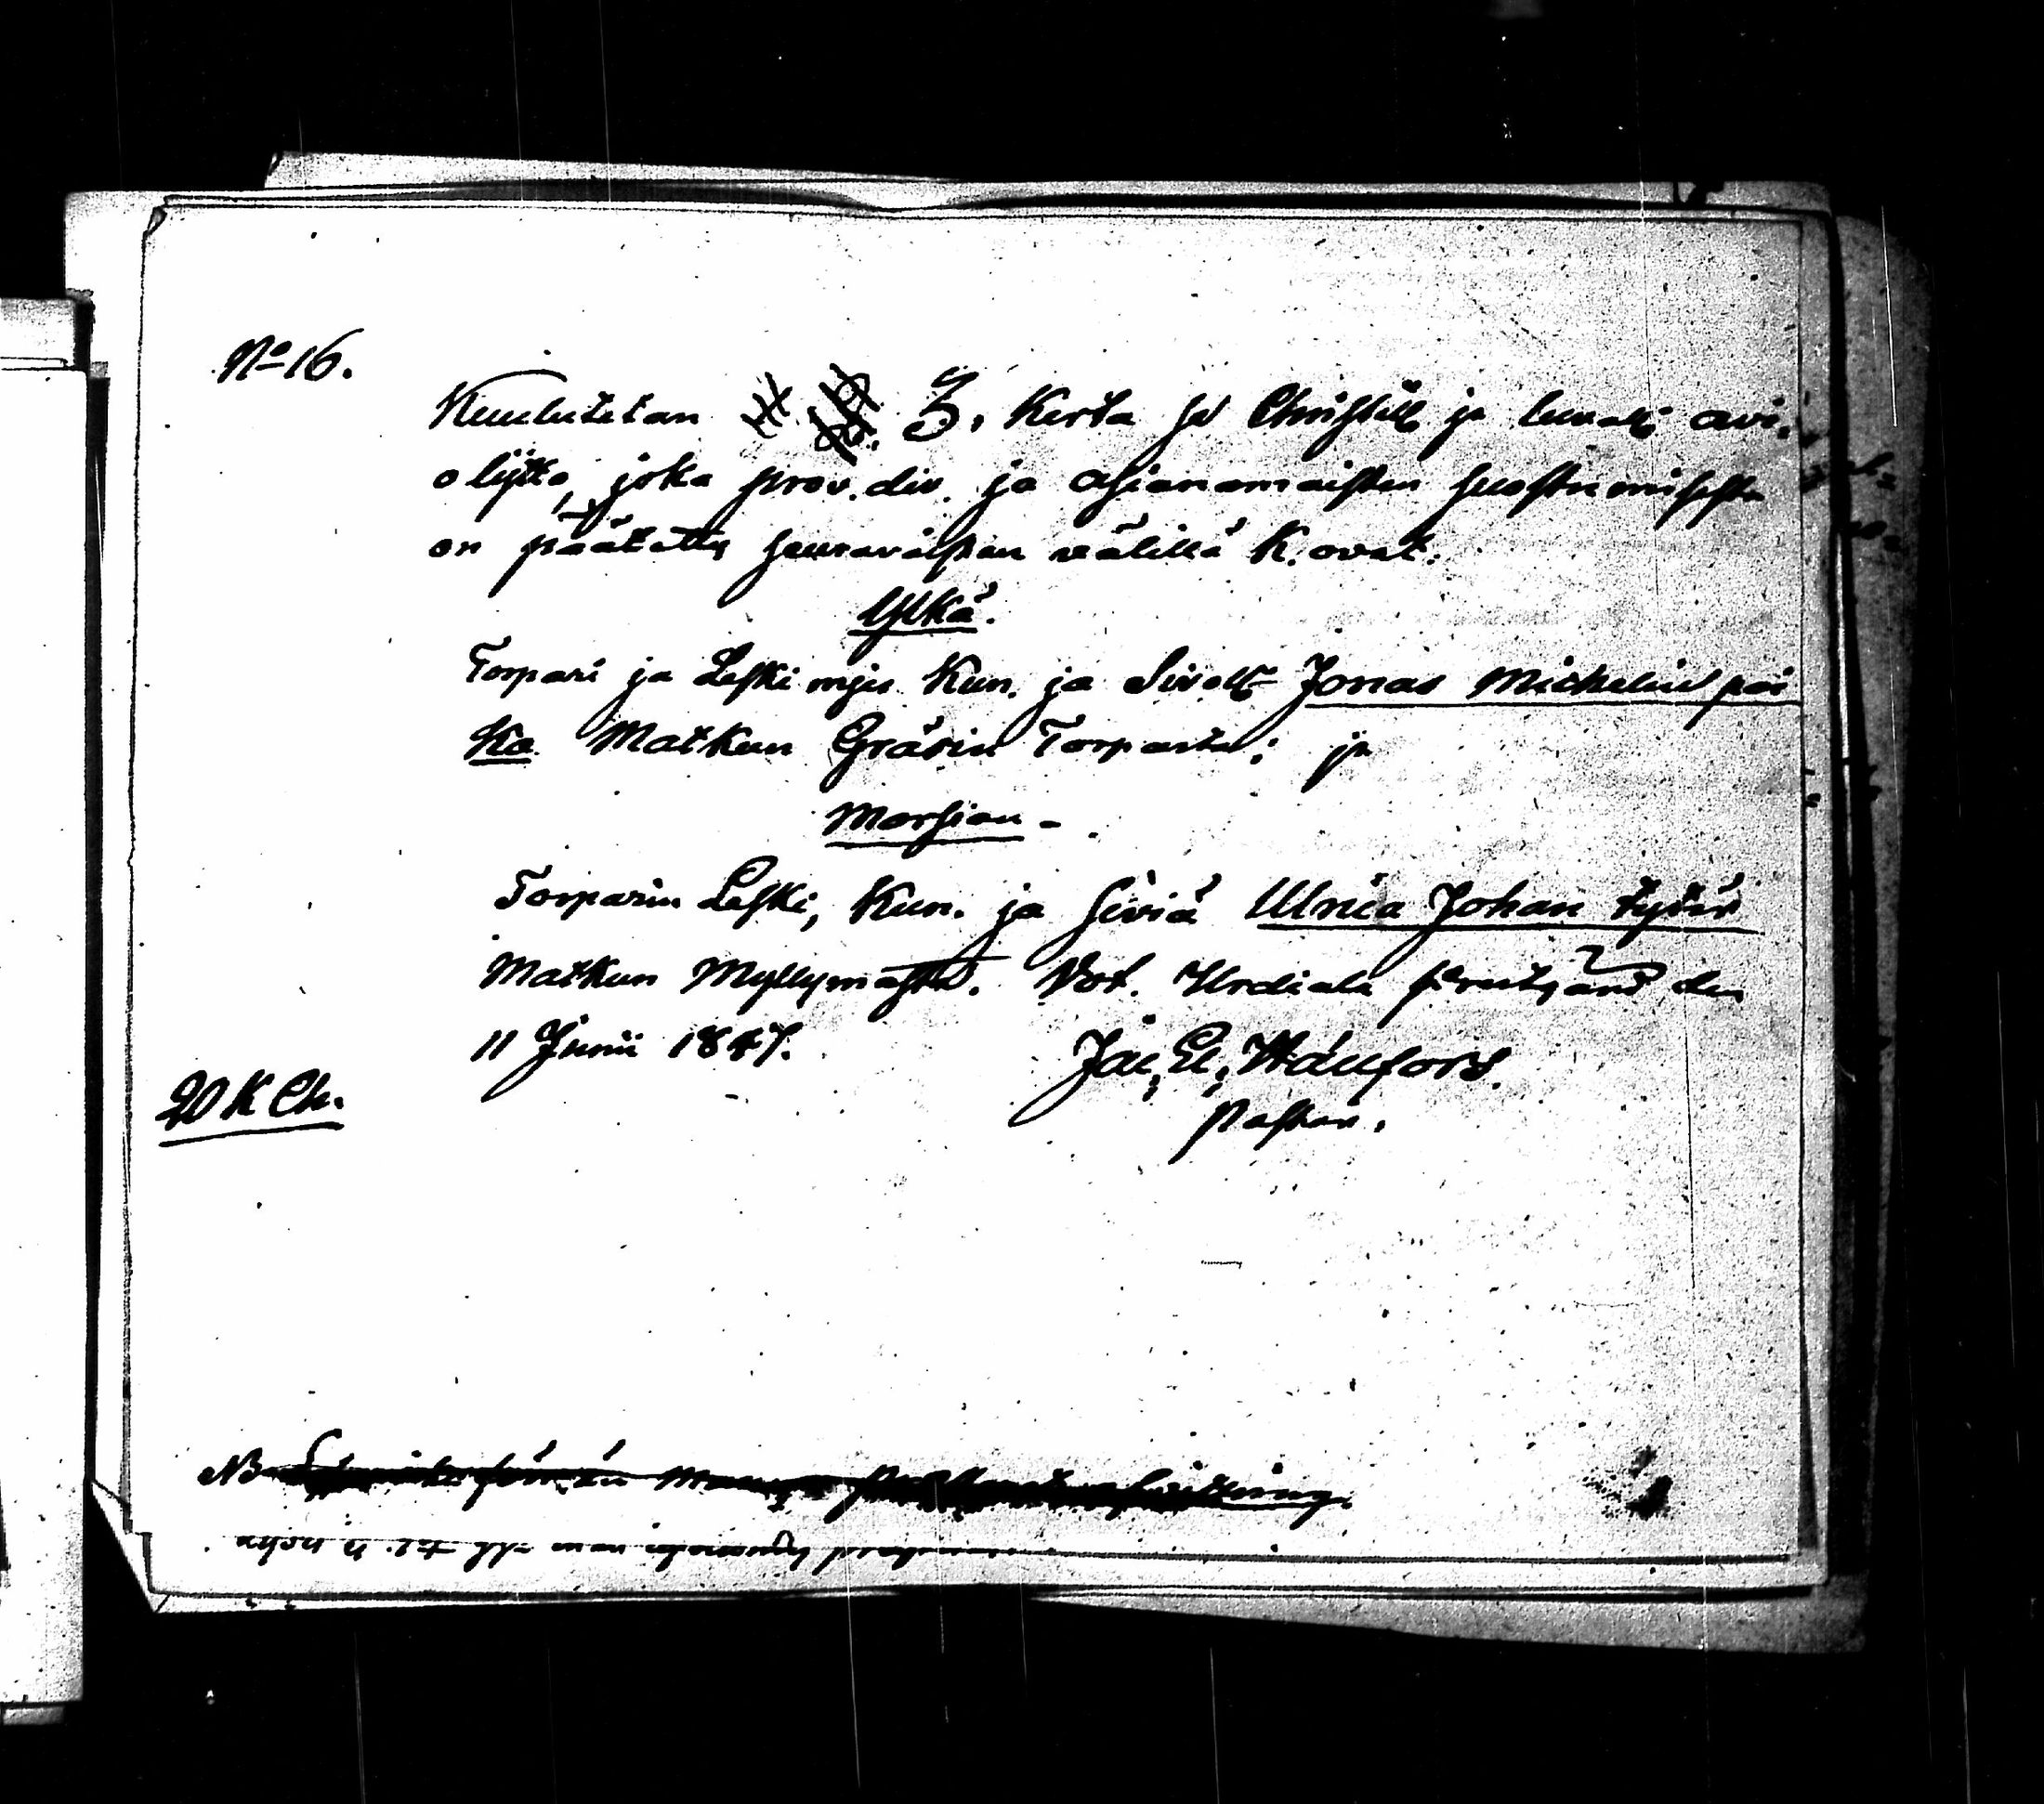 No 16.
Kuulutetan 3. Kerta se Christill ja luvall avi=
olijtto, joka prov. div. ja asianomaisten suostumisesta
on päätetty seuravaisten välillä K. ovat:
Ylkä.
Torpari ja Leskimjes Kun. ja Siveä Jonas Michelin poi
ka Matkun Gräsin Torpasta; ja
Morsian -
Torparin Leski, Kun. ja Siviä Ulrica Johan tytär
Matkun Myllymaasta. Vot. Urdiala prestgård den
11 Junii 1847. Jac. El.
20 K Ch. Pastor.
NB